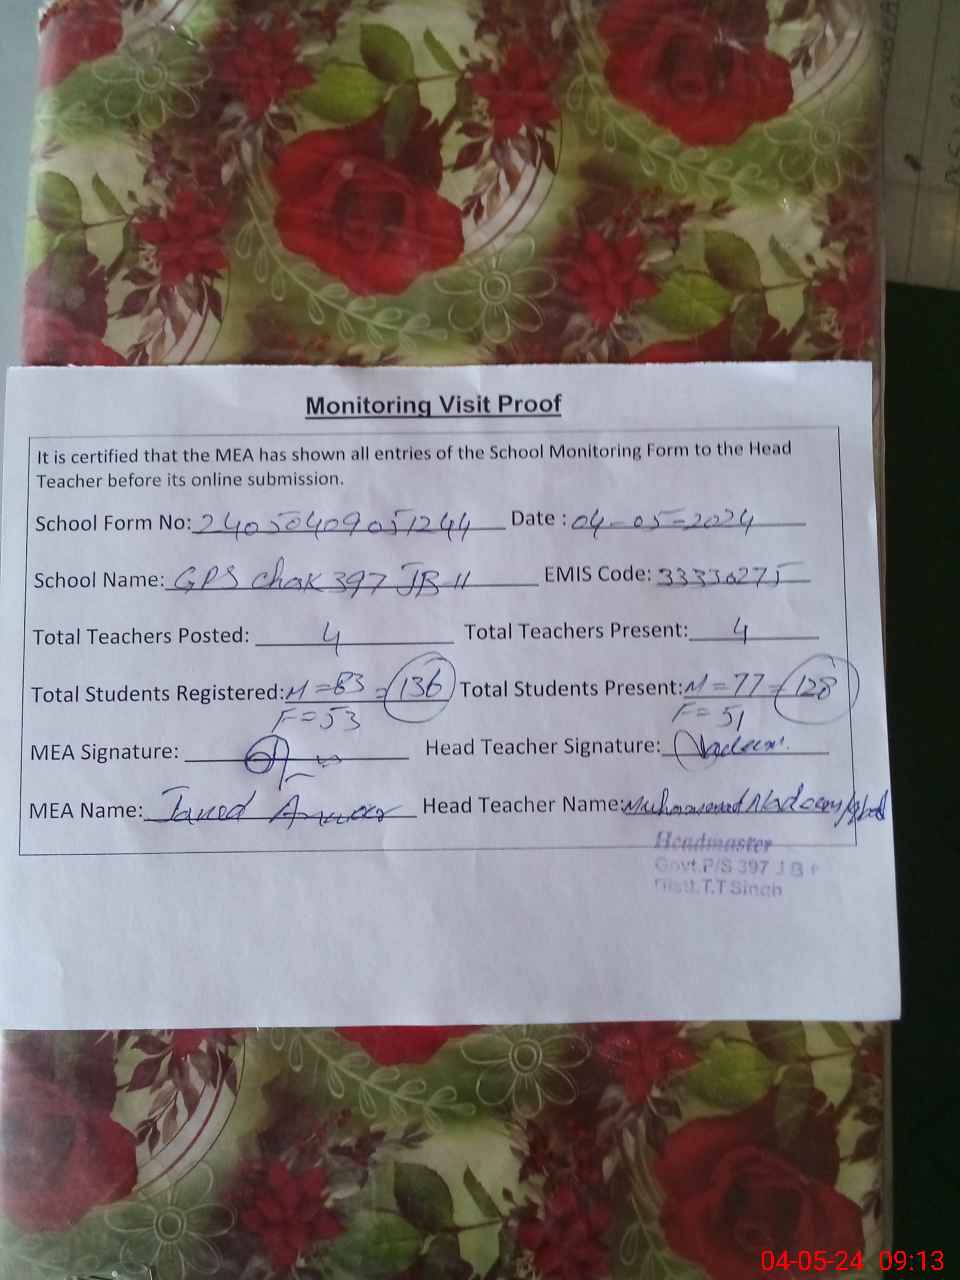 Monitoring Visit Proof
It is certified that the MEA has shown all entries of the School Monitoring Form to the Head
Teacher before its online submission.
School Form No: 24050409051244 Date : 04-05-2024
School Name: GPS Chak 397 JB II EMIS Code: 33330275
Total Teachers Posted: 4 Total Teachers Present: 4
Total Students Registered: M=83 = 136 Total Students Present: M=77 = 128
F=53 F=51
MEA Signature: Head Teacher Signature: Nadeem
MEA Name: Javed Anwar Head Teacher Name: Muhammad Nadeem Iqbal
Headmaster
Govt.P/S 397 J B
Distt.T.T Singh
04-05-24 09:13